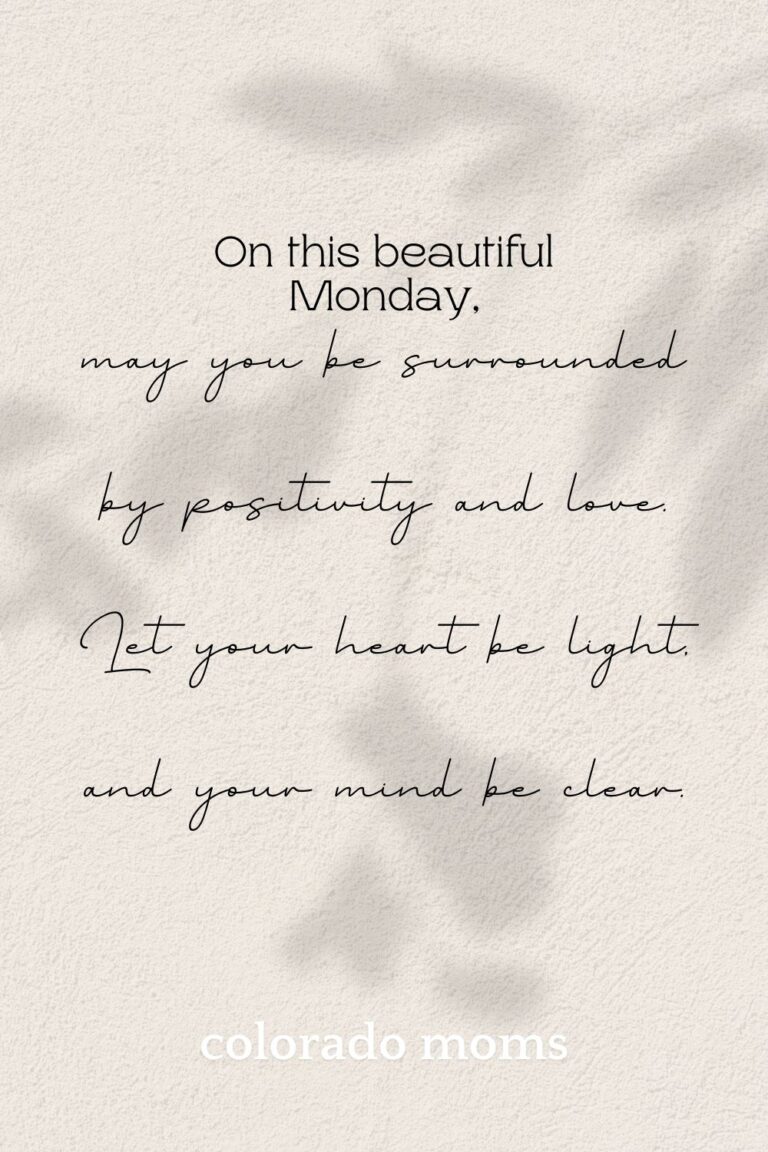 On this beautiful
Monday,
may you be surrounded
by positivity and love.
Let your heart be light,
and your mind be clear.
colorado moms